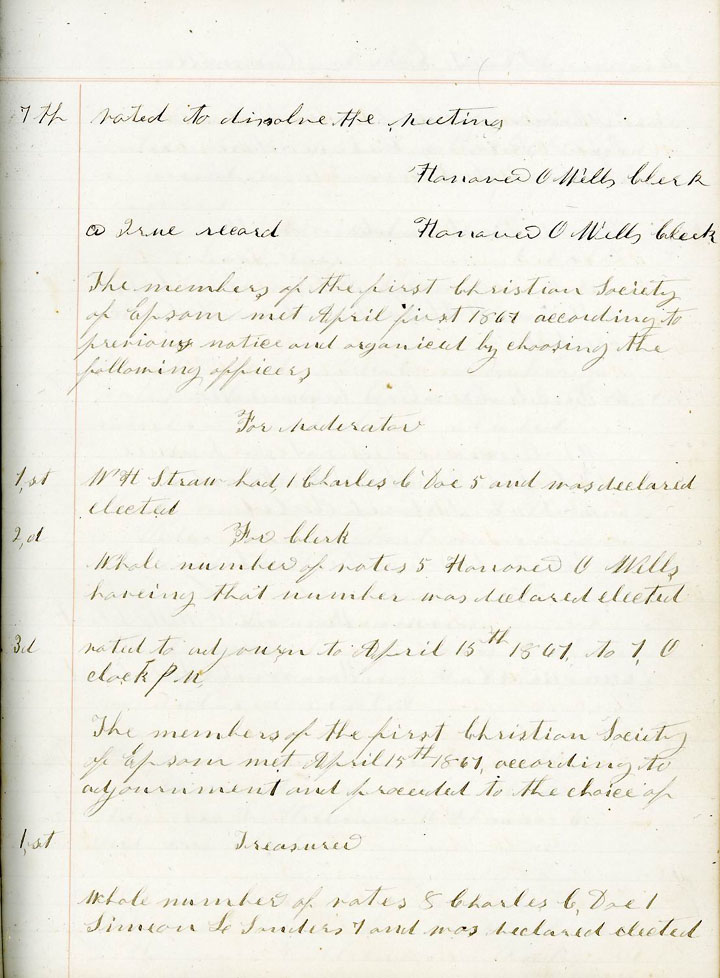 7th voted to dissolve the meeting
Hanover O Wells Clerk
a True record Hanover O Wells Cleek
The members of the first Christian Society
of Epsom met April first 1867 according to
previous notice and organicd by choosing the
following officers
For Moderator
1,st W H Straw had, 1 Charles C Doe 5 and was declared
elected
2,d For Clerk
Whole number of votes 5 Hanover O Wells
haveing that number was declared elected
3d voted to adjourn to April 15th 1867, to 7, O
clock P M,
The members of the first Christian Society
of Epsom met April 15th 1867, according to
adjournment and proceded to the choice of
1,st Treasurer
Whole number of votes 8 Charles C, Doe 1
Simeon 7 and was declared elected